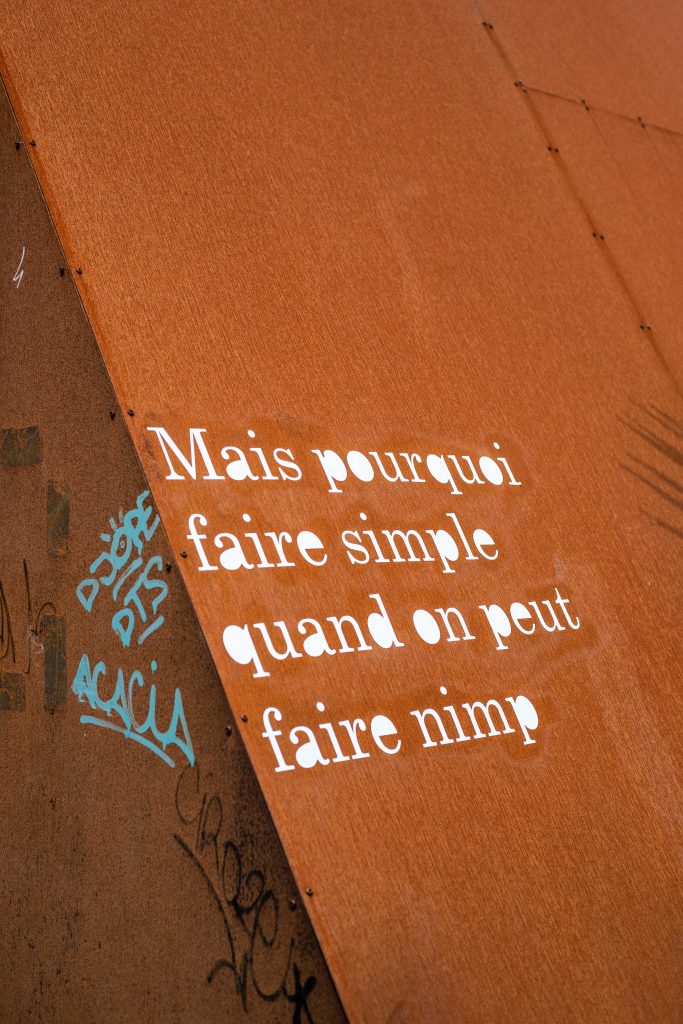 Mais pourquoi
faire simple
quand on peut
faire nimp
DJOKE
DTS
ACACIA